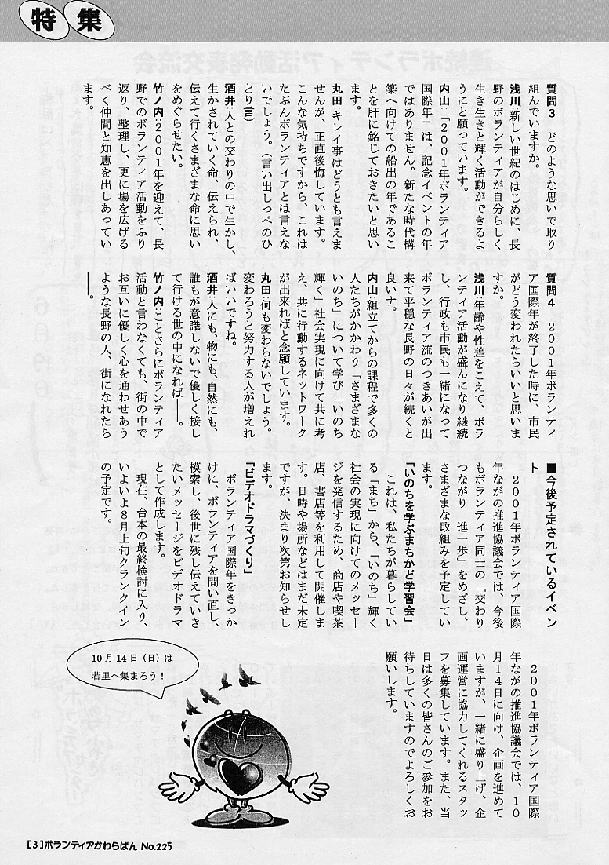 特集
質問3　どのような思いで取り
組んでいますか。
浅川 新しい世紀のはじめに、長
野のボランティアが自分らしく
生き生きと輝く活動ができるよ
うにと願っています。
内山 「2001年ボランティア
国際年」は、記念イベントの年
ではありません。新たな時代構
築へ向けての船出の年であるこ
とを肝に銘じておきたいと思い
ます。
丸田 キレイ事はどうとも言えま
せんが、正直後悔しています。
こんな気持ちですから、これは
たぶんボランティアとは言えな
いでしょう。（言い出しっぺのひ
とり(三)
酒井 人との交わりの中で生かし、
生かされていく命、伝えられ、
伝えて行くさまざまな命に思い
をめぐらせたい。
竹ノ内 2001年を迎えて、長
野でのボランティア活動をふり
返り、整理し、更に場を広げる
べく仲間と知恵を出しあってい
ます。
質問4　2001年ボランティ
ア国際年が終了した時に、市民
がどう変われたらいいと思いま
すか。
浅川 年齢や性差をこえて、ボラ
ンティア活動が盛んになり継続
し、行政も市民も一緒になって
ボランティア流のつきあいが出
来て平穏な長野の日々が続くと
良い。
内山 組立てからの課程で多くの
人たちがかかわり「さまざまな
いのち」について学び、いのち
輝く」社会実現に向けて共に考
え、共に行動するネットワーク
が出来ればと念願しています。
丸田 何も変わらないでしょう。
変わろうと努力する人が増えれ
ばいいですね。
酒井 人にも、物にも、自然にも、
誰もが意識しないで優しく接し
て行ける世の中になれば――。
竹ノ内 ことさらにボランティア
活動と言わなくても、街の中で
お互いに優しく心を通わせあう
ような長野の人、街になれたら
――。
■今後予定されているイベン
ト
2001年ボランティア国際
年ながの推進協議会では、今後
もボランティア同士の「交わり
つながり 進一歩」をめざし、
さまざまな取組みを予定してい
ます。
「いのちを学ぶまちかど学習会」
これは、私たちが暮らしてい
る「まち」から、「いのち」輝く
社会の実現に向けてのメッセー
ジを発信するため、商店や喫茶
店、書店等を利用して開催しま
す。日時や場所などはまだ未定
ですが、決まり次第お知らせし
ます。
「ビデオドラマづくり」
ボランティア国際年をきっか
けに、ボランティアを問い直し、
模索し、後世に残し伝えていき
たいメッセージをビデオドラマ
として作成します。
現在、台本の最終検討に入り、
いよいよ8月上旬クランクイン
の予定です。
2001年ボランティア国際
年ながの推進協議会では、10
月14日に向け、企画を進めて
いますが、一緒に盛り上げ、企
画運営に協力してくれるスタッ
フを募集しています。また、当
日は多くの皆さんのご参加をお
待ちしていますのでよろしくお
願いします。
10月14日（日）は
若里へ集まろう！
【3】ボランティアかわらばん No.225